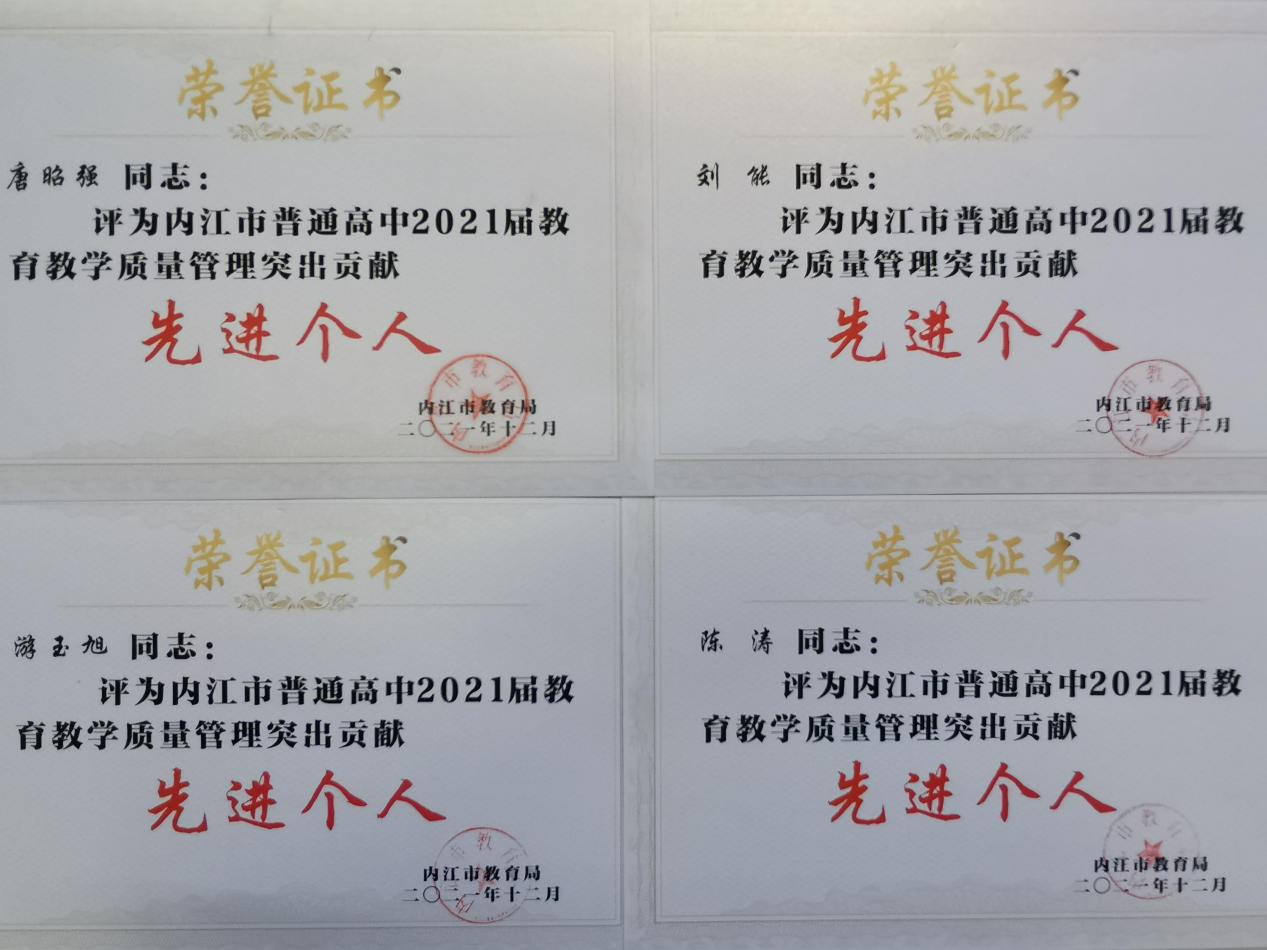 荣誉证书
唐昭强 同志：
评为内江市普通高中2021届教
育教学质量管理突出贡献
先进个人
市教育
内江市教育局
二〇二一年十二月
荣誉证书
刘 能 同志：
评为内江市普通高中2021届教
育教学质量管理突出贡献
先进个人
市教育
内江市教育局
二〇二一年十二月
荣誉证书
游玉旭 同志：
评为内江市普通高中2021届教
育教学质量管理突出贡献
先进个人
市教育
内江市教育局
二〇二一年十二月
荣誉证书
陈 涛 同志：
评为内江市普通高中2021届教
育教学质量管理突出贡献
先进个人
市教育
内江市教育局
二〇二一年十二月